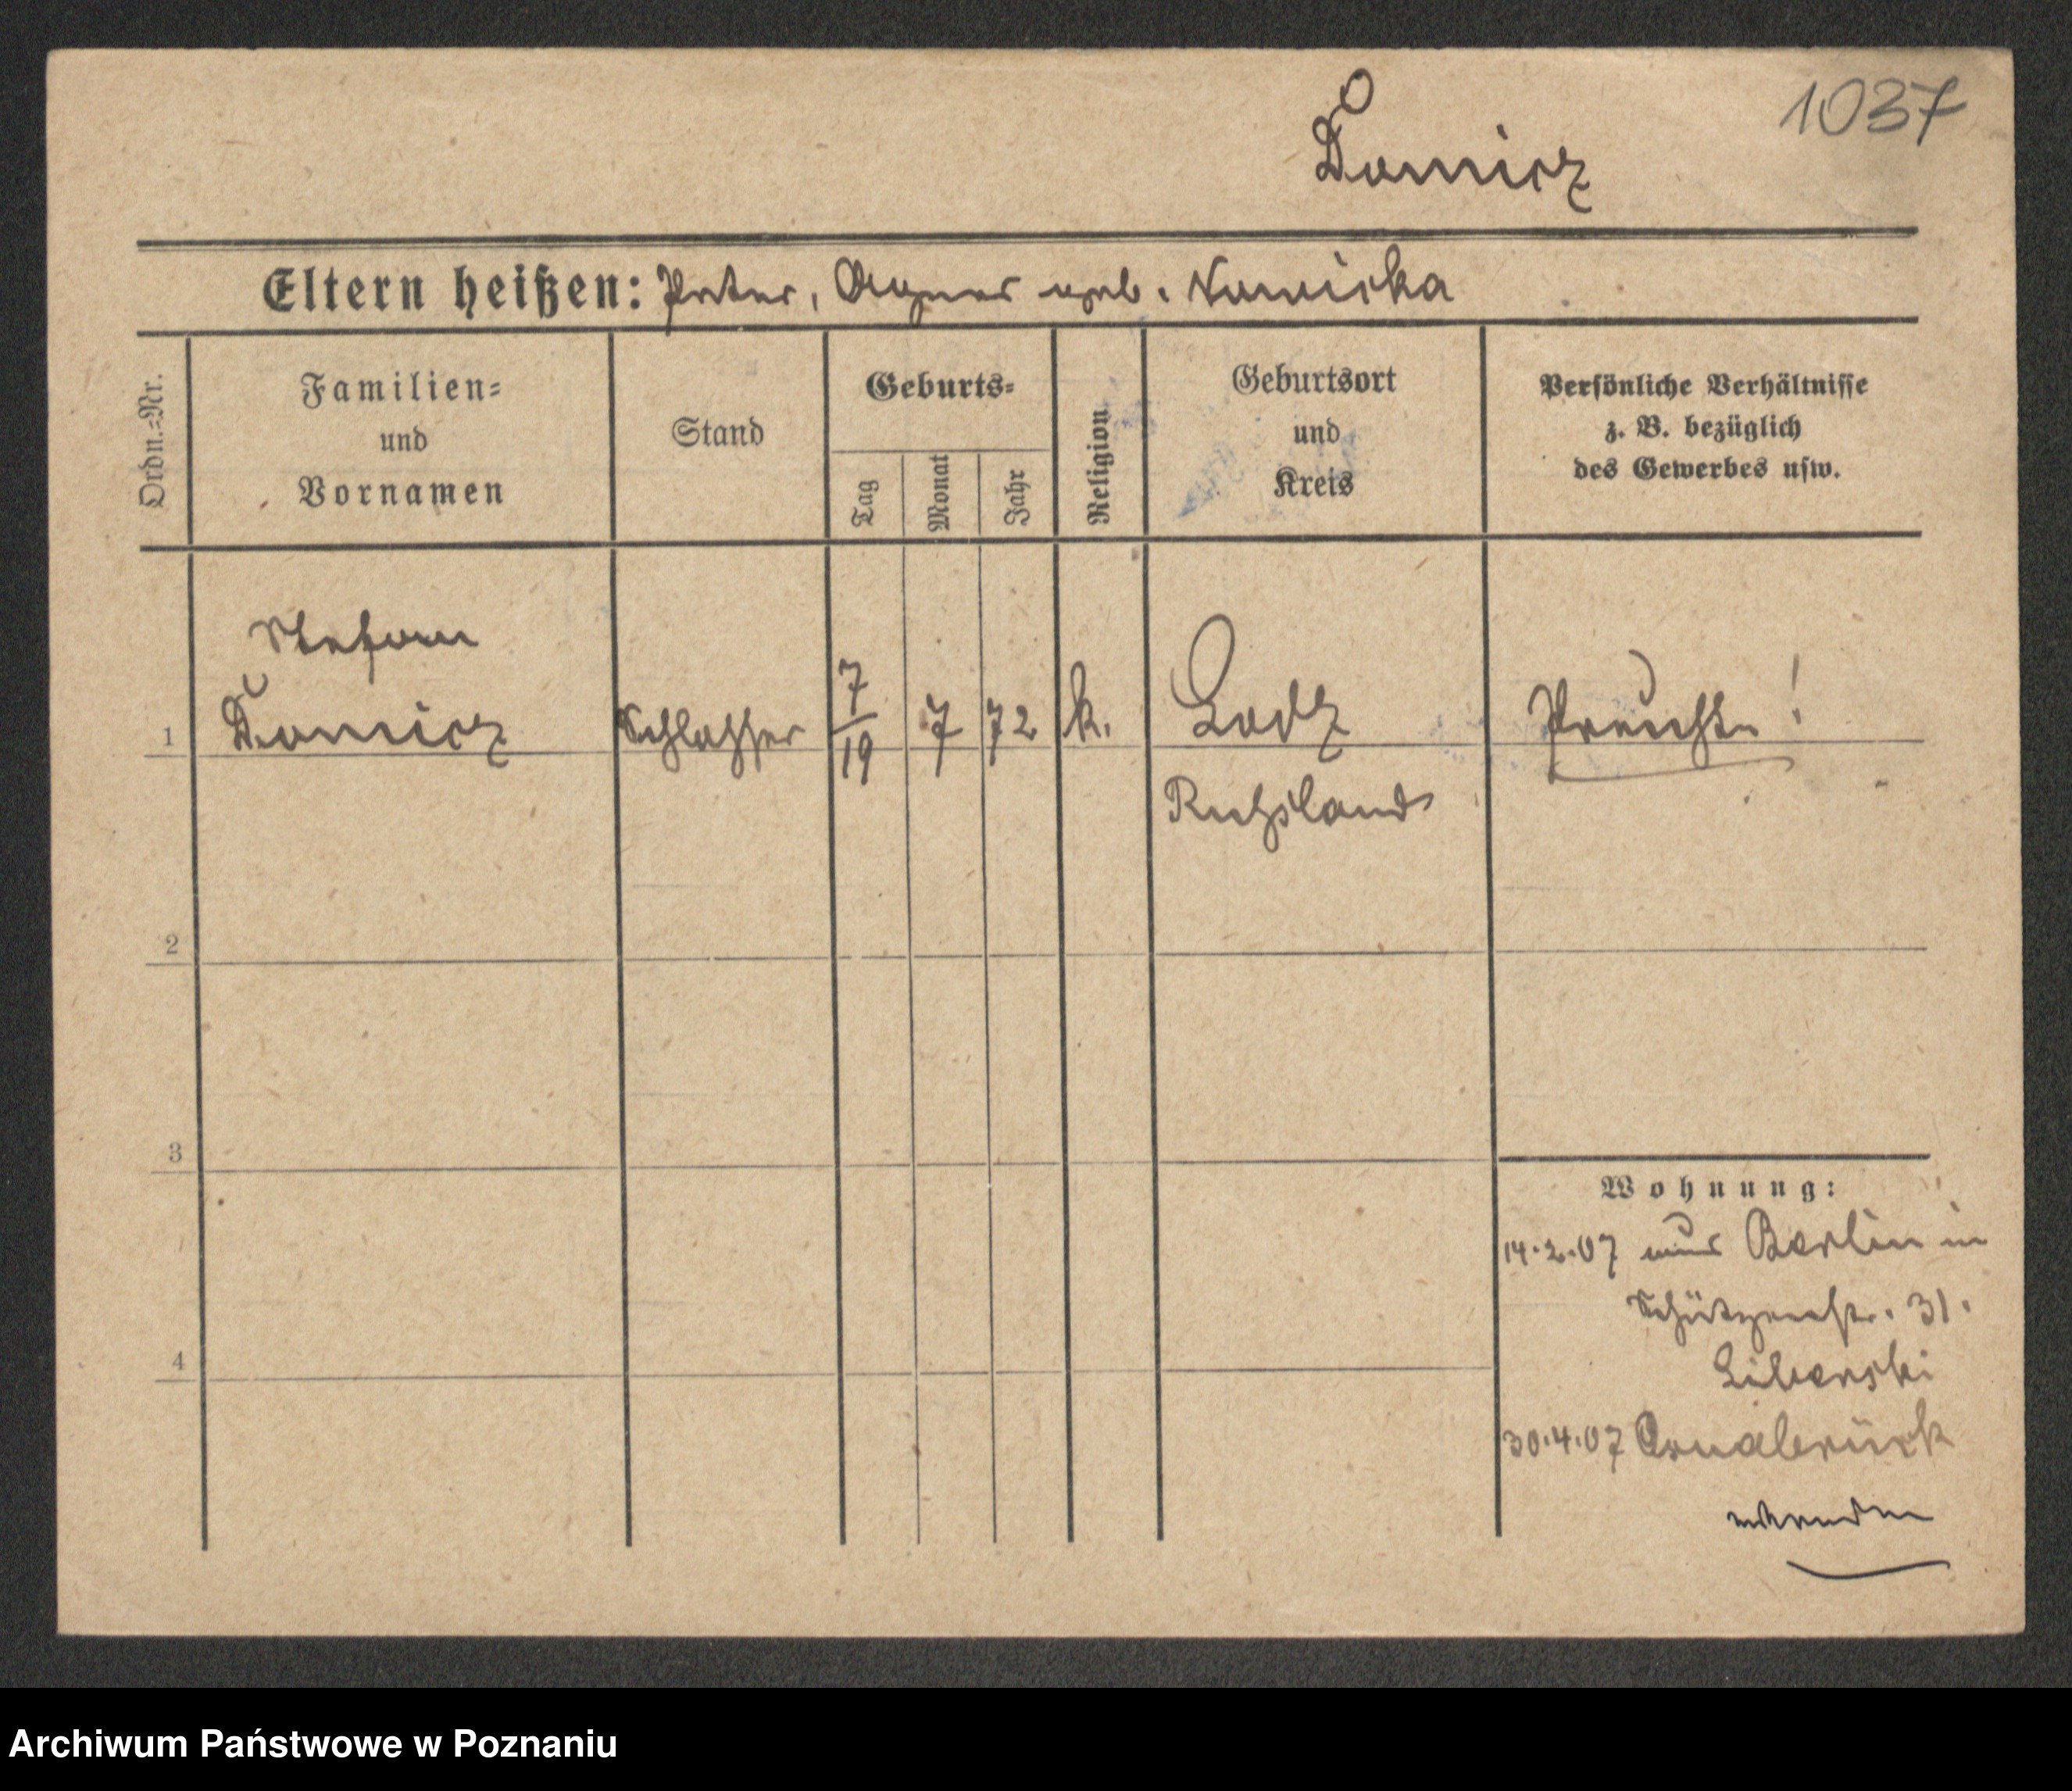 1037
Domicz
Eltern heißen: Peter, Agnes geb. Nowicka
Ordn.=Nr.
Familien=
und
Vornamen
Stand
Geburts=
Tag
Monat
Jahr
Religion
Geburtsort
und
Kreis
Persönliche Verhältnisse
z. B. bezüglich
des Gewerbes usw.
Stefan
1 Domicz Schlosser 7/19 7 72 k. Lodz Preuße!
Rußland
2
3
Wohnung:
14.2.07 aus Berlin in
Schützenstr. 31.
4
Liberski
30.4.07 Osnabrück
Archiwum Państwowe w Poznaniu